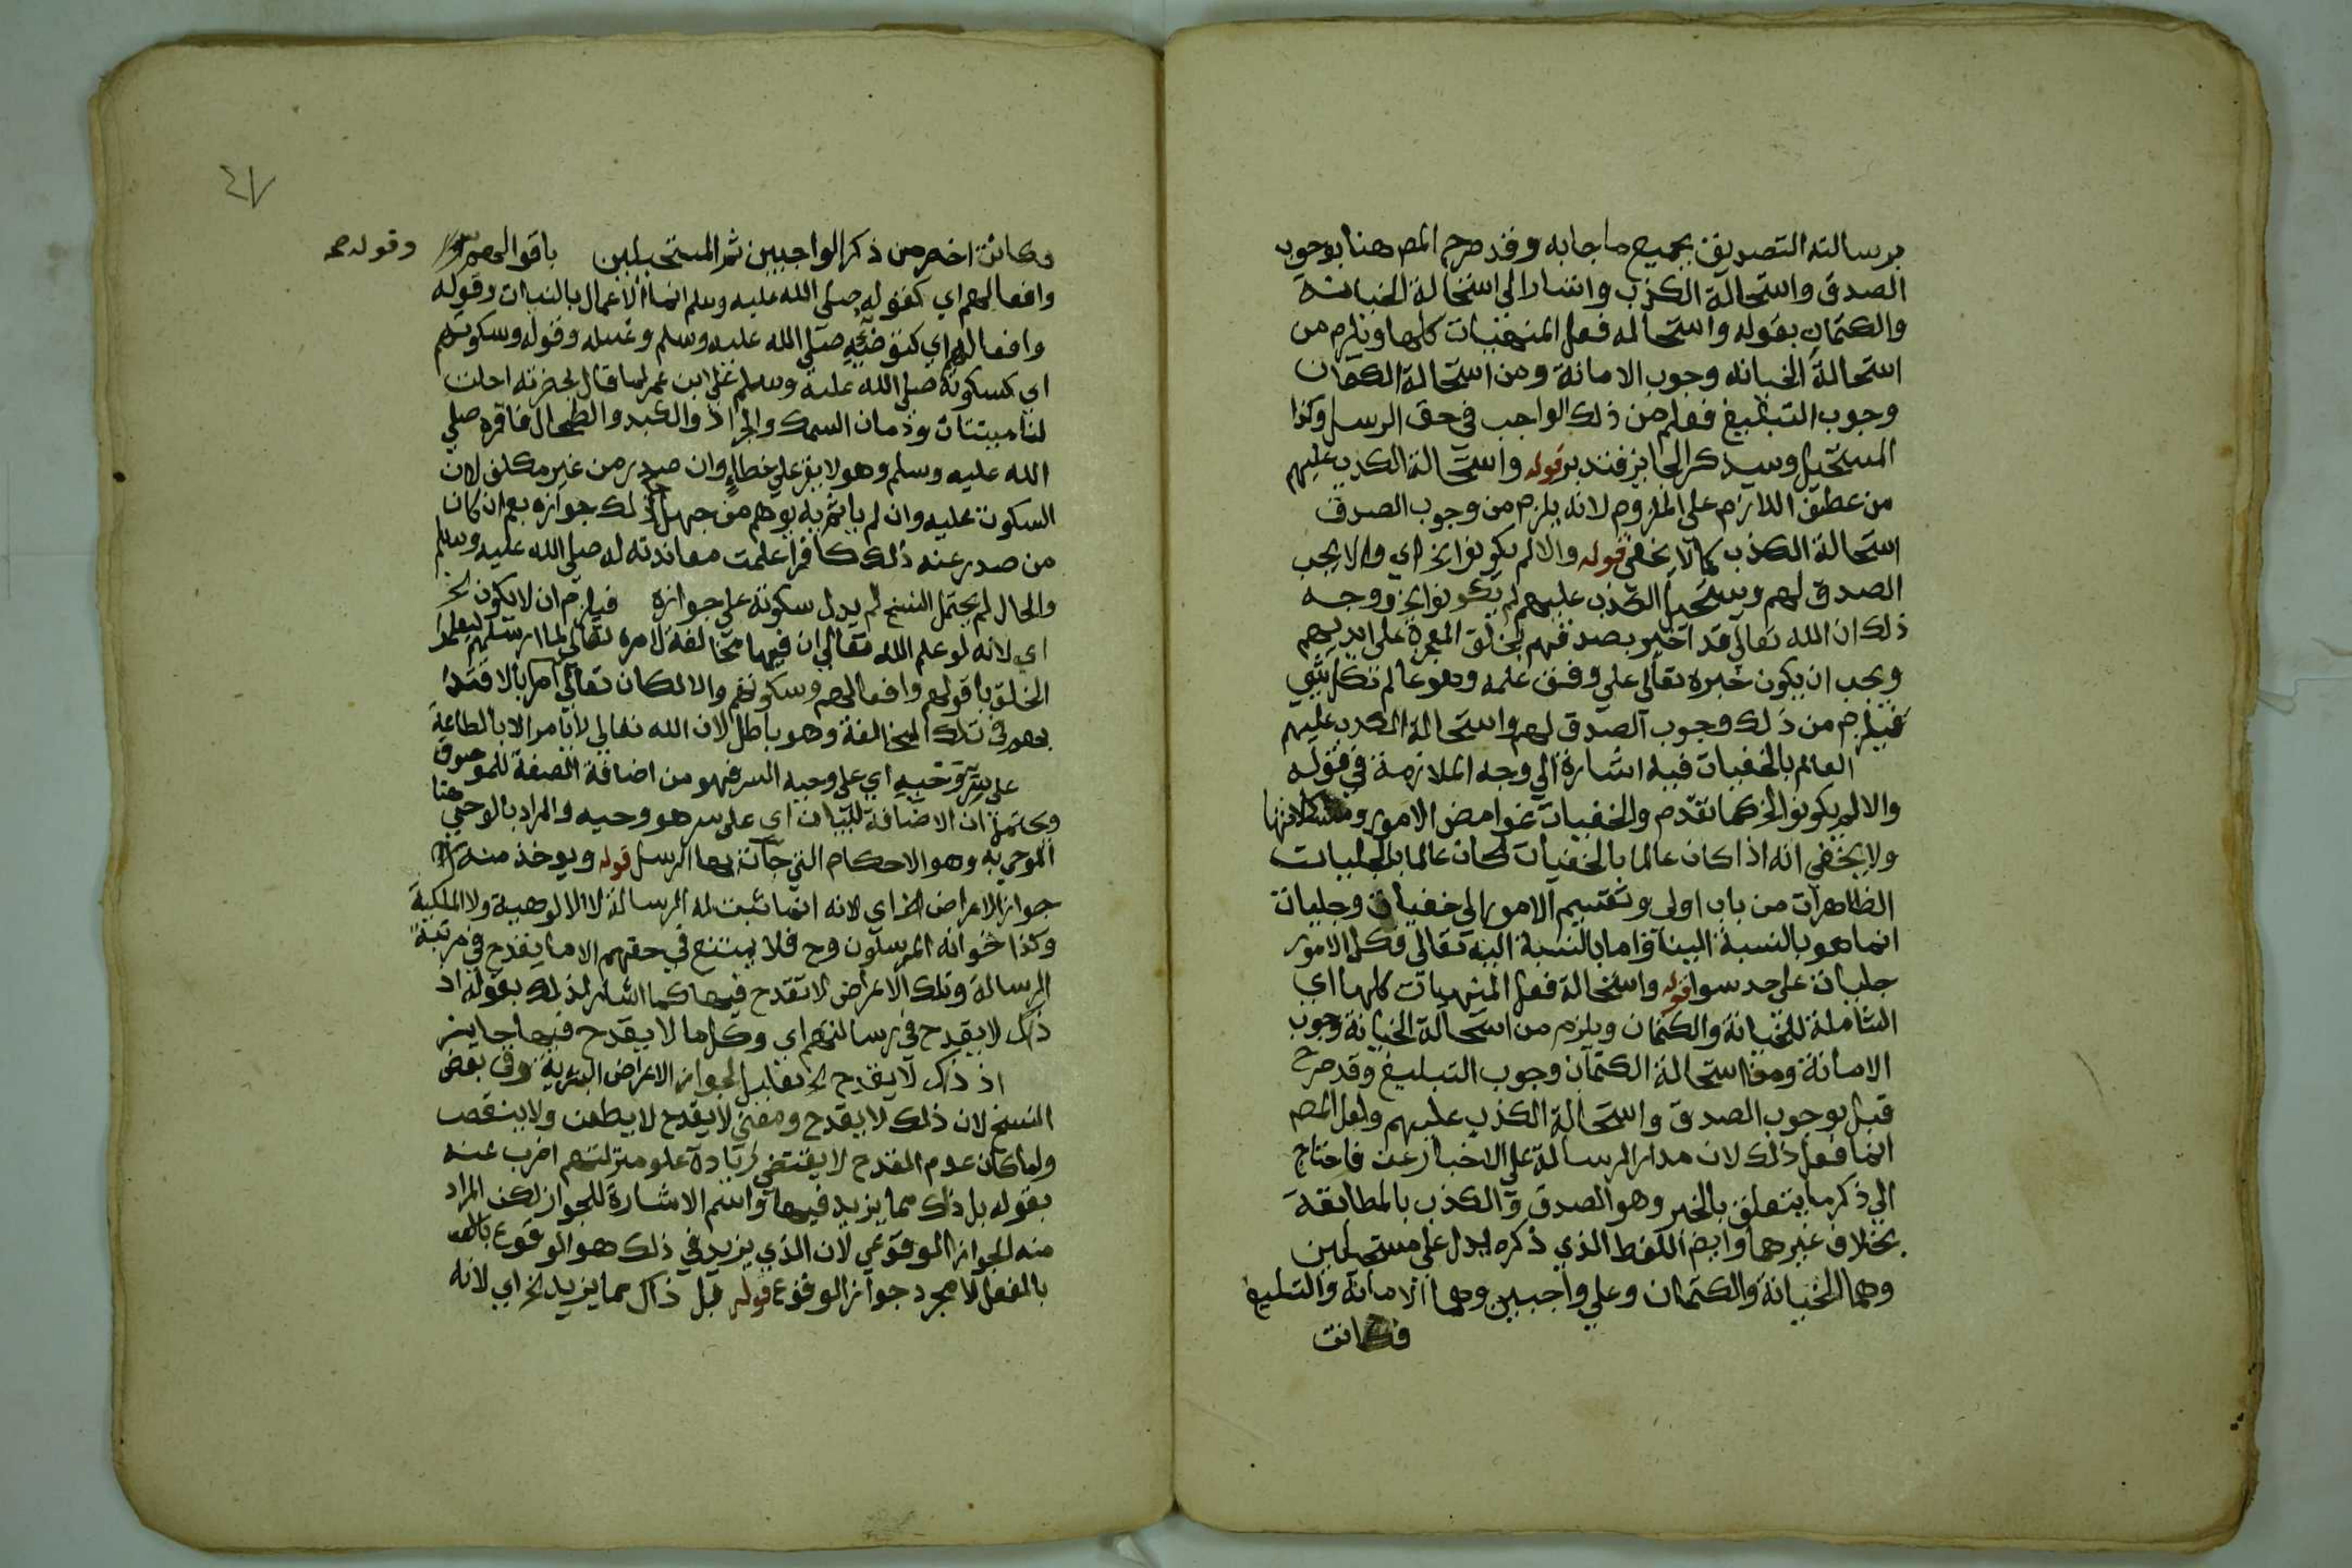 برسالته التصديق بجميع ما جا به وقد صرح المص هنا بوجوب
الصدق واستحالة الكذب واشار الي استحالة الخيانة
والكتمان بقوله واستحالة فعل المنهيات كلها ويلزم من
استحالة الخيانه وجوب الامانة ومن استحالة الكتمان
وجوب التبليغ فعلم من ذلك الواجب في حق الرسل وكذا
المستحيل وسيذكر الجايز فتدبر قوله واستحالة الكذب عليهم
من عطف اللازم على الملزوم لانه يلزم من وجوب الصدق
استحالة الكذب كما لا يخفي قوله والا لم يكونوا الخ اي والا يجب
الصدق لهم ويستحيل الكذب عليهم لم يكونوا الخ ووجه
ذلك ان الله تعالي قد اخبر بصدقهم بخلق المعجزة على ايديهم
ويجب ان يكون خبره تعالى علي وفق علمه وهو عالم بكل شي
فيلزم من ذلك وجوب الصدق لهم واستحالة الكذب عليهم
العالم بالخفيات فيه اشارة الي وجه الملازمة في قوله
والا لم يكونوا الخ كما تقدم والخفيات غوامض الامور ومشكلاتها
ولا يخفي انه اذا كان عالما بالخفيات كان عالما بالجليات
الظاهرات من باب اولى وتقسيم الامور الي خفيات وجليات
انما هو بالنسبة الينا واما بالنسبة اليه تعالى فكل الامور
جليات على حد سوا قوله واستحالة فعل المنهيات كلها اي
الشاملة للخيانة والكتمان ويلزم من استحالة الخيانة وجوب
الامانة ومن استحالة الكتمان وجوب التبليغ وقد صرح
قبل بوجوب الصدق واستحالة الكذب عليهم ولعل المص
انما فعل ذلك لان مدار الرسالة على الاخبار عن فاحتاج
الي ذكر ما يتعلق بالخبر وهو الصدق والكذب بالمطابقة
بخلاف غيرهما وايض اللفظ الذي ذكره يدل على مستحيلين
وهما الخيانة والكتمان وعلي واجبين وهما الامانة والتبليغ
فكانت
٤٧
وقوله
فكانت اخصر من ذكر الواجبين ثم المستحيلين باقوالهم
وافعالهم اي كقوله صلى الله عليه وسلم انما الاعمال بالنيات وقوله
وافعالهم اي كتوضيه صلي الله عليه وسلم وغسله وقوله وسكوتهم
اي كسكوته صلي الله عليه وسلم علي ابن عمر لما قال بحضرته احلت
لنا ميتتان ودمان السمك والجراد والكبد والطحال فاقره صلي
الله عليه وسلم وهو لا يقر علي خطاء وان صدر من غير مكلف لان
السكوت عليه وان لم ياثم به يوهم من جهل ذلك جوازه نعم ان كان
من صدر عنه ذلك كافرا علمت معاندته له صلي الله عليه وسلم
والحال لم يحتمل النسخ لم يدل سكوته علي جوازه فيلزم ان لا يكون الخ
اي لانه لو علم الله تعالي ان فيها مخالفة لامره تعالي لما ارسلهم ليعلموا
الخلق باقوالهم وافعالهم وسكوتهم والا لكان تعالي امر بالاقتدا
بهم في تلك المخالفة وهو باطل لان الله تعالي لا يامر الا بالطاعة
على سر وحيه اي على وحيه السر فهو من اضافة الصفة للموصوف
ويحتمل ان الاضافة للبيان اي على سر هو وحيه والمراد بالوحي هنا
الموحي به وهو الاحكام التي جات بها الرسل قوله ويوخذ منه
جواز الاعراض الخ اي لانه انما ثبت له الرسالة لا الالوهية ولا الملكية
وكذا اخوانه المرسلون وح فلا يمتنع في حقهم الا ما يقدح في مرتبة
الرسالة وتلك الاعراض لا تقدح فيها كما اشار لذلك بقوله اذ
ذاك لا يقدح في رسالتهم اي وكل ما لا يقدح فيها جايز
اذ ذاك لا يقدح الخ تعليل لجواز الاعراض البشرية وفي بعض
النسخ لان ذلك لا يقدح ومعني لا يقدح لا يطعن ولا ينقص
ولما كان عدم القدح لا يقتضي زيادة علو منزلتهم اضرب عنه
بقوله بل ذلك مما يزيد فيها واسم الاشارة للجواز لكن المراد
منه الجواز الوقوعي لان الذي يزيد في ذلك هو الوقوع
بالفعل لا مجرد جواز الوقوع قوله بل ذاك مما يزيد الخ اي لانه